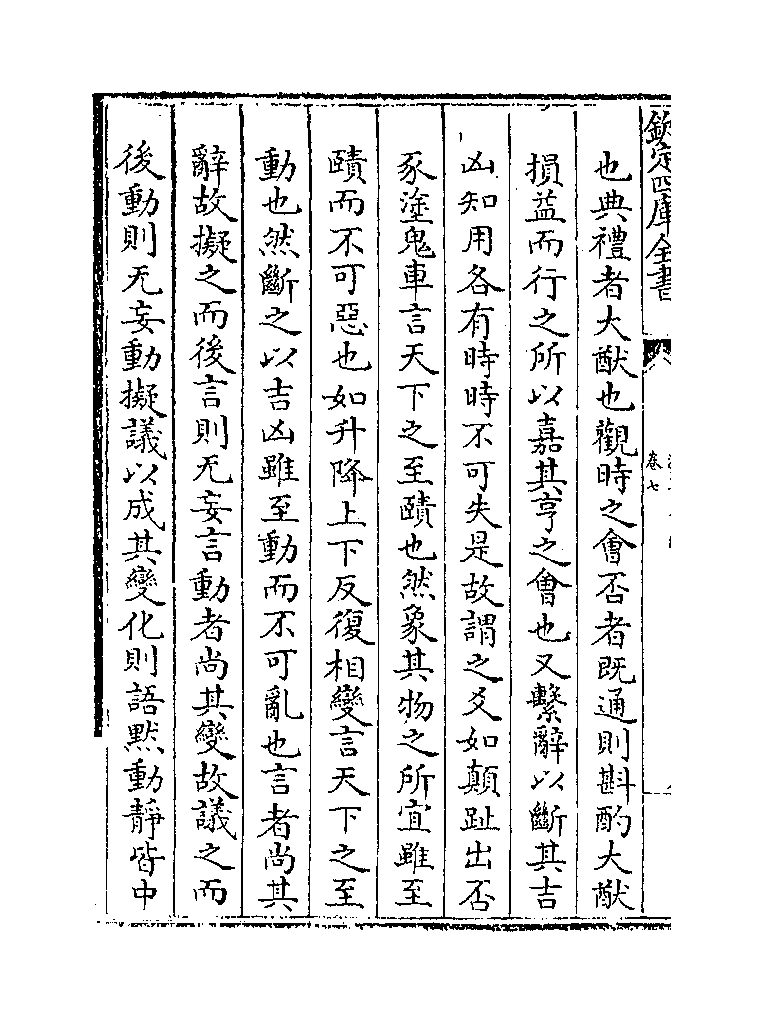 欽定四庫全書
卷七
也典禮者大猷也觀時之會否者既通則斟酌大猷
損益而行之所以嘉其亨之會也又繫辭以斷其吉
凶知用各有時時不可失是故謂之爻如顛趾出否
豕塗鬼車言天下之至賾也然象其物之所宜雖至
賾而不可惡也如升降上下反復相變言天下之至
動也然斷之以吉凶雖至動而不可亂也言者尚其
辭故擬之而後言則无妄言動者尚其變故議之而
後動則无妄動擬議以成其變化則語黙動靜皆中